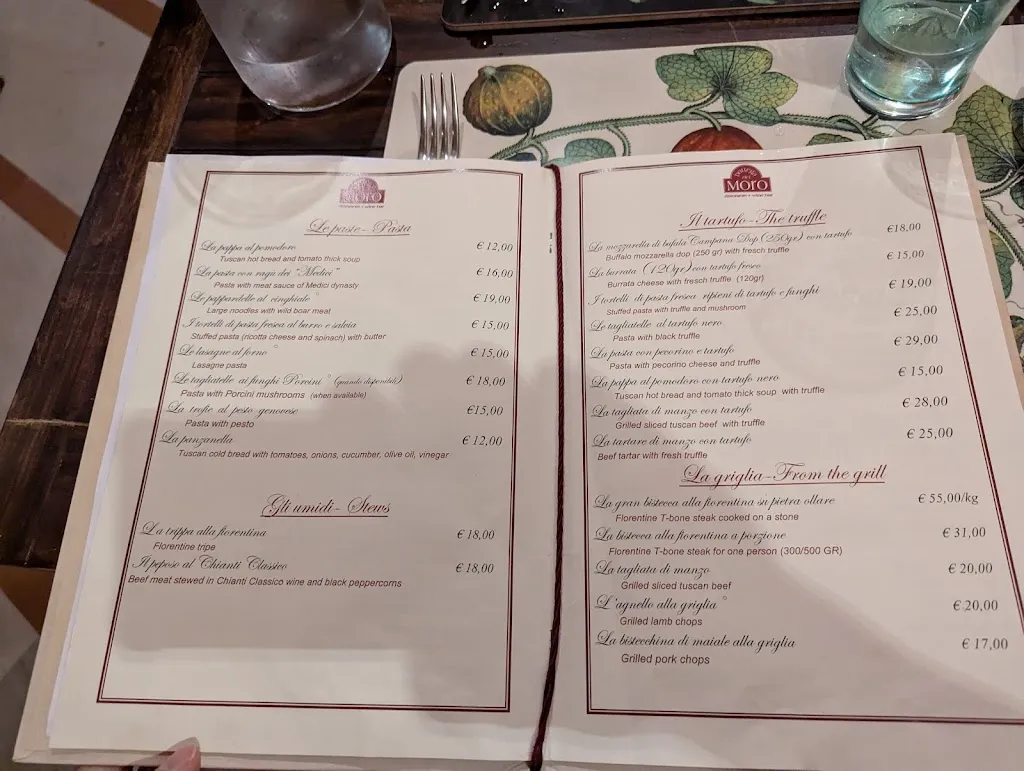 MORO
Le paste - Pasta
La pappa al pomodoro € 12,00
Tuscan hot bread and tomato thick soup
La pasta con ragù dei "Medici" € 16,00
Pasta with meat sauce of Medici dynasty
Le pappardelle al cinghiale ° € 19,00
Large noodles with wild boar meat
I tortelli di pasta fresca al burro e salvia € 15,00
Stuffed pasta (ricotta cheese and spinach) with butter
Le lasagne al forno ° € 15,00
Lasagne pasta
Le tagliatelle ai funghi Porcini ° (quando disponibili) € 18,00
Pasta with Porcini mushrooms (when available)
La trofie al pesto genovese €15,00
Pasta with pesto
La panzanella € 12,00
Tuscan cold bread with tomatoes, onions, cucumber, olive oil, vinegar
Gli umidi - Stews
La trippa alla fiorentina € 18,00
Florentine tripe
Il peposo al Chianti Classico € 18,00
Beef meat stewed in Chianti Classico wine and black peppercorns
MORO
Il tartufo - The truffle
La mozzarella di bufala Campana Dop (250gr) con tartufo €18,00
Buffalo mozzarella dop (250 gr) with fresch truffle
La burrata (120gr) con tartufo fresco € 15,00
Burrata cheese with fresch truffle (120gr)
I tortelli di pasta fresca ripieni di tartufo e funghi € 19,00
Stuffed pasta with truffle and mushroom
Le tagliatelle al tartufo nero € 25,00
Pasta with black truffle
La pasta con pecorino e tartufo € 29,00
Pasta with pecorino cheese and truffle
La pappa al pomodoro con tartufo nero € 15,00
Tuscan hot bread and tomato thick soup with truffle
La tagliata di manzo con tartufo € 28,00
Grilled sliced tuscan beef with truffle
La tartare di manzo con tartufo € 25,00
Beef tartar with fresh truffle
La griglia - From the grill
La gran bistecca alla fiorentina su pietra ollare € 55,00/kg
Florentine T-bone steak cooked on a stone
La bistecca alla fiorentina a porzione € 31,00
Florentine T-bone steak for one person (300/500 GR)
La tagliata di manzo € 20,00
Grilled sliced tuscan beef
L'agnello alla griglia ° € 20,00
Grilled lamb chops
La bistecchina di maiale alla griglia € 17,00
Grilled pork chops